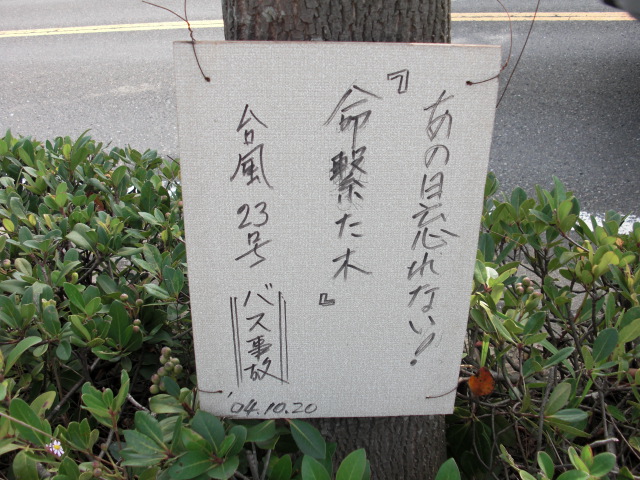 あの日忘れない!
『命繋た木』
台風23号 バス事故
'04.10.20